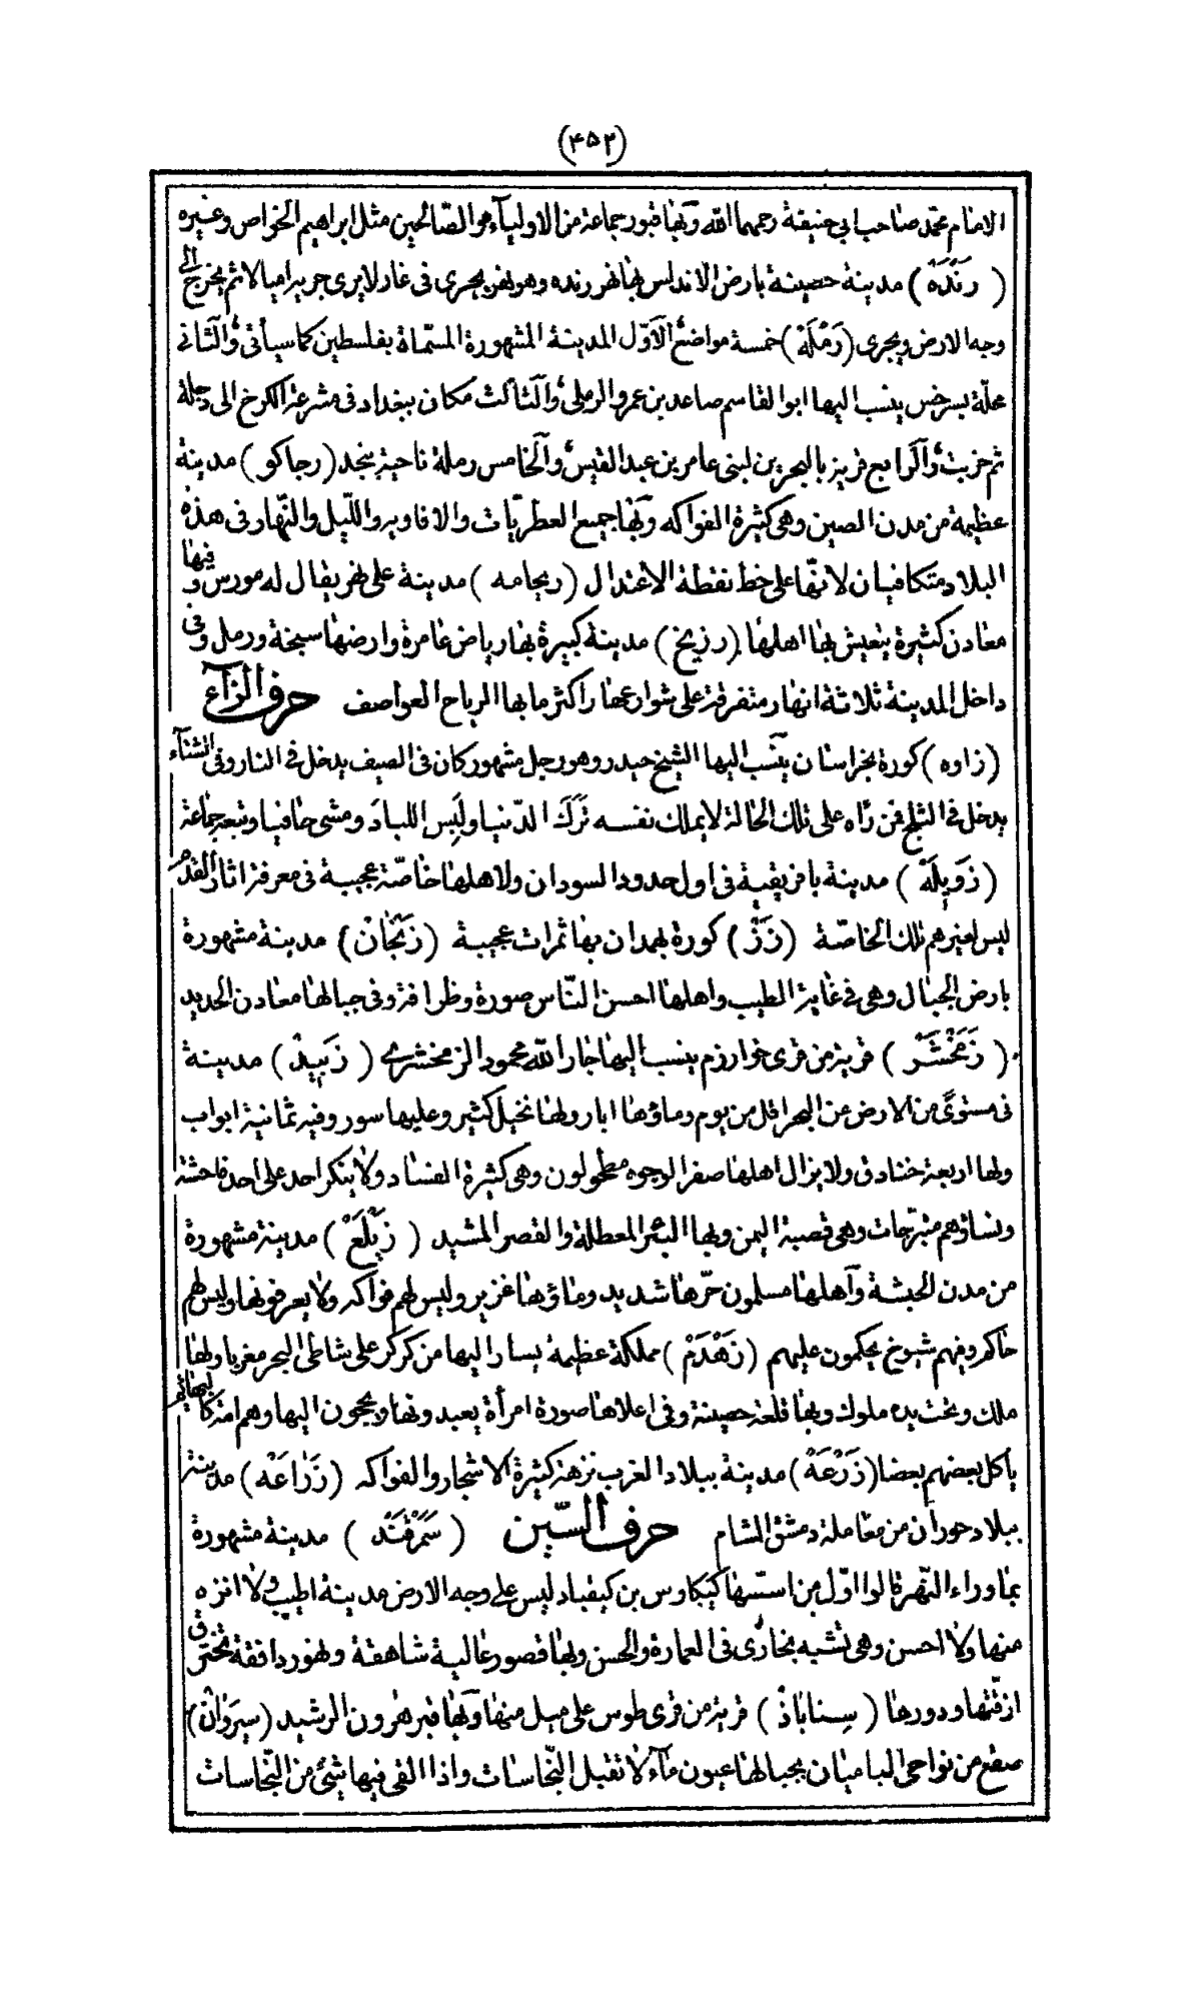 (۴۵۲)
الامام محمد صاحب ابي حنيفة رحمهما الله وبها قبور جماعة من الاولياء والصالحين مثل ابراهيم الخواص وغيره
(رَنْدَه) مدينة حصينة بارض الاندلس بها نهر رنده وهو نهر يجرى فى غار لا يرى جريه اميالا ثم يخرج الى
وجه الارض ويجرى (رَمْلَة) خمسة مواضع الاوّل المدينة المشهورة المسمّاة بفلسطين كما سيأتى والثانى
محلّة بسرخس ينسب اليها ابوالقاسم صاعد بن عمرو الرملى والثالث مكان ببغداد فى مشرعة الكرخ الى دجلة
ثم خربت والرابع قرية بالبحرين لبنى عامر بن عبد القيس والخامس رملة ناحية بنجد (رجاكو) مدينة
عظيمة من مدن الصين وهى كثيرة الفواكه وبها جميع العطريّات والافاويه والليل والنهار فى هذه
البلاد متكافيان لانّها على خط نقطة الاعتدال (ريجامه) مدينة على نهر يقال له مورس وفيها
معادن كثيرة يتعيش بها اهلها (رزيخ) مدينة كبيرة بها رياض غامرة وارضها سبخة ورمل وفى
داخل المدينة ثلاثة انهار متفرقة على شوارعها واكثر مابها الرياح العواصف حرف الزاء
(زاوه) كورة بخراسان ينسب اليها الشيخ حيدر وهو رجل مشهور كان فى الصيف يدخل فى النار وفى الشتاء
يدخل فى الثلج فمن رآه على تلك الحالة لا يملك نفسه تَرَكَ الدّنيا ولَبِس اللباد ومشى حافيا وتبعه جماعة
(زَوِيلَة) مدينة بافريقية فى اول حدود السودان ولاهلها خاصّة عجيبة فى معرفة اثار القدم
ليس لغيرهم تلك الخاصّة (زَزْ) كورة بهمدان بها ثمرات عجيبة (زَنْجَان) مدينة مشهورة
بارض الجبال وهى فى غاية الطيب واهلها احسن النّاس صورة وظرافة وفى جبالها معادن الحديد
(زَمَخْشَر) قرية من قرى خوارزم ينسب اليها جار الله محمود الزمخشرى (زَبِيدْ) مدينة
فى مستوًى من الارض عن البحر اقل من يوم وماؤها ابار ولها نخيل كثير وعليها سور وفيه ثمانية ابواب
ولها اربعة خنادق ولا يزال اهلها صفر الوجوه مطحولون وهى كثيرة الفساد ولا ينكر احد على احد فاحشة
ونساؤهم متبرّجات وهى قصبة اليمن وبها البئر المعطلة والقصر المشيد (زَيْلَعْ) مدينة مشهورة
من مدن الحبشة واهلها مسلمون حرّها شديد وماؤها غزير وليس لهم فواكه ولا يعرفونها وليس لهم
حاكم وفيهم شيوخ يحكمون عليهم (زَهْدَمْ) مملكة عظيمة يسار اليها من كركر على شاطئ البحر مغربا ولها
ملك وتحت يده ملوك وبها قلعة حصينة وفى اعلاها صورة امرأة يعبدونها ويحجون اليها وهم امة كالبهائم
يأكل بعضهم بعضا (زَرْعَة) مدينة ببلاد الغرب نزهة كثيرة الاشجار والفواكه (زَرَاعَة) مدينة
ببلاد حوران من معاملة دمشق الشام حرف السّين (سَمَرْقَنْد) مدينة مشهورة
بماوراء النهر قالوا اوّل من اسّسها كيكاوس بن كيقباد ليس على وجه الارض مدينة اطيب ولا انزه
منها ولا احسن وهى تشبه بخارى فى العمارة والحسن ولها قصور عالية شاهقة ونهور دافقة تخترق
ازقّتها ودورها (سِنابَاذْ) قرية من قرى طوس على ميل منها وبها قبر هرون الرشيد (سِيرَوَان)
صقع من نواحى الباميان بجبالها عيون ماء لا تقبل النّجاسات واذا القى فيها شئ من النّجاسات